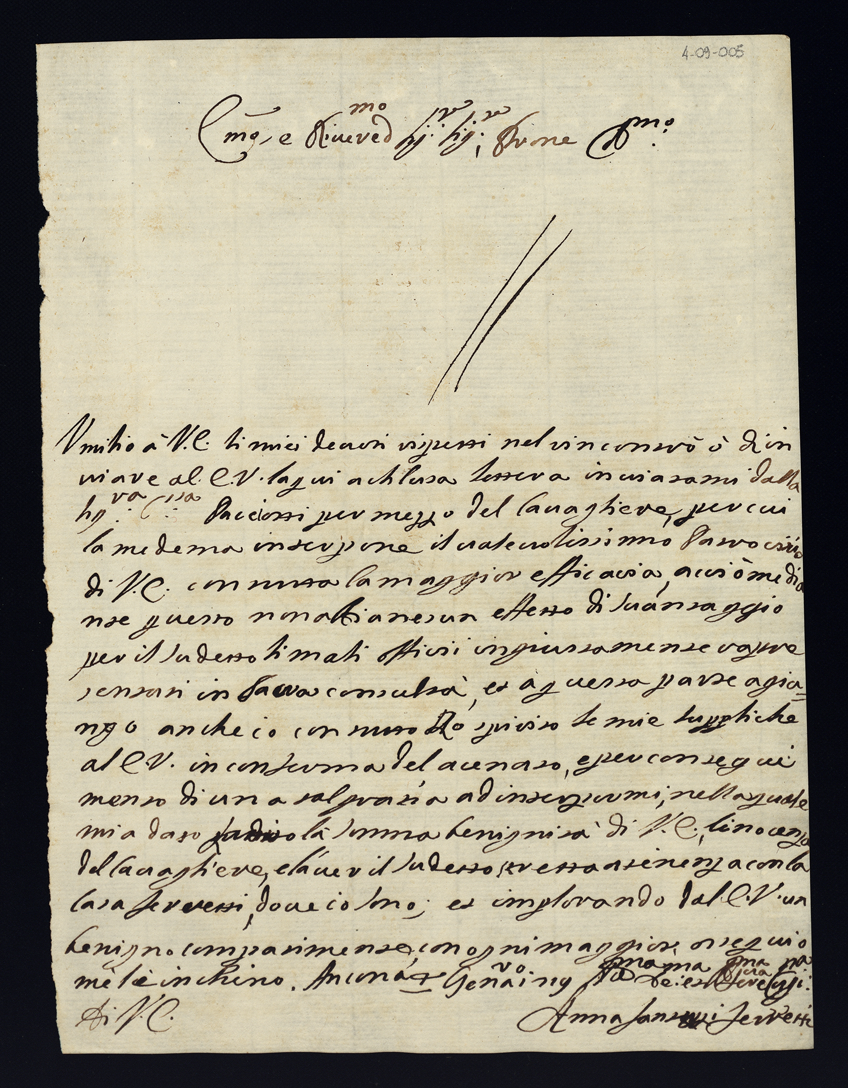 4-09-005
Em.o e Riuered.mo Sig.re Sig.re, Prone
Umilio à V.E. li miei decori rispetti nel rincontro ò d'in
uiare al E.V. la qui achlusa lettera inuiatami dalla
Sig.ra C.ssa Pacciotti per mezzo del Cauagliere, per cui
la medema interpone il ualeuolissimo Patrocinio
di V.E. con tutta la maggior efficacia, acciò media
nte questo non abia nesun effetto di suantaggio
per il sudetto li mali offitii ingiustamente rapre
sentati in Sacra consulta, et a questa parte agiu=
ngo anche io con tutto spirito le mie suppliche
al E.V. in conferma del acenato, e per consegui
mento di una tal grazia ad interpormi, nella quale
mi à dato la somma benignità di V.E., l'inocenza
del Cauagliere, e l'auer il sudetto stretta atinenza con la
Casa Ferretti, doue io sono; et implorando dal E.V. un
benigno compatimento, con ogni maggior ossequio
me le inchino. Ancona
Di V.E.
Anna Ferretti